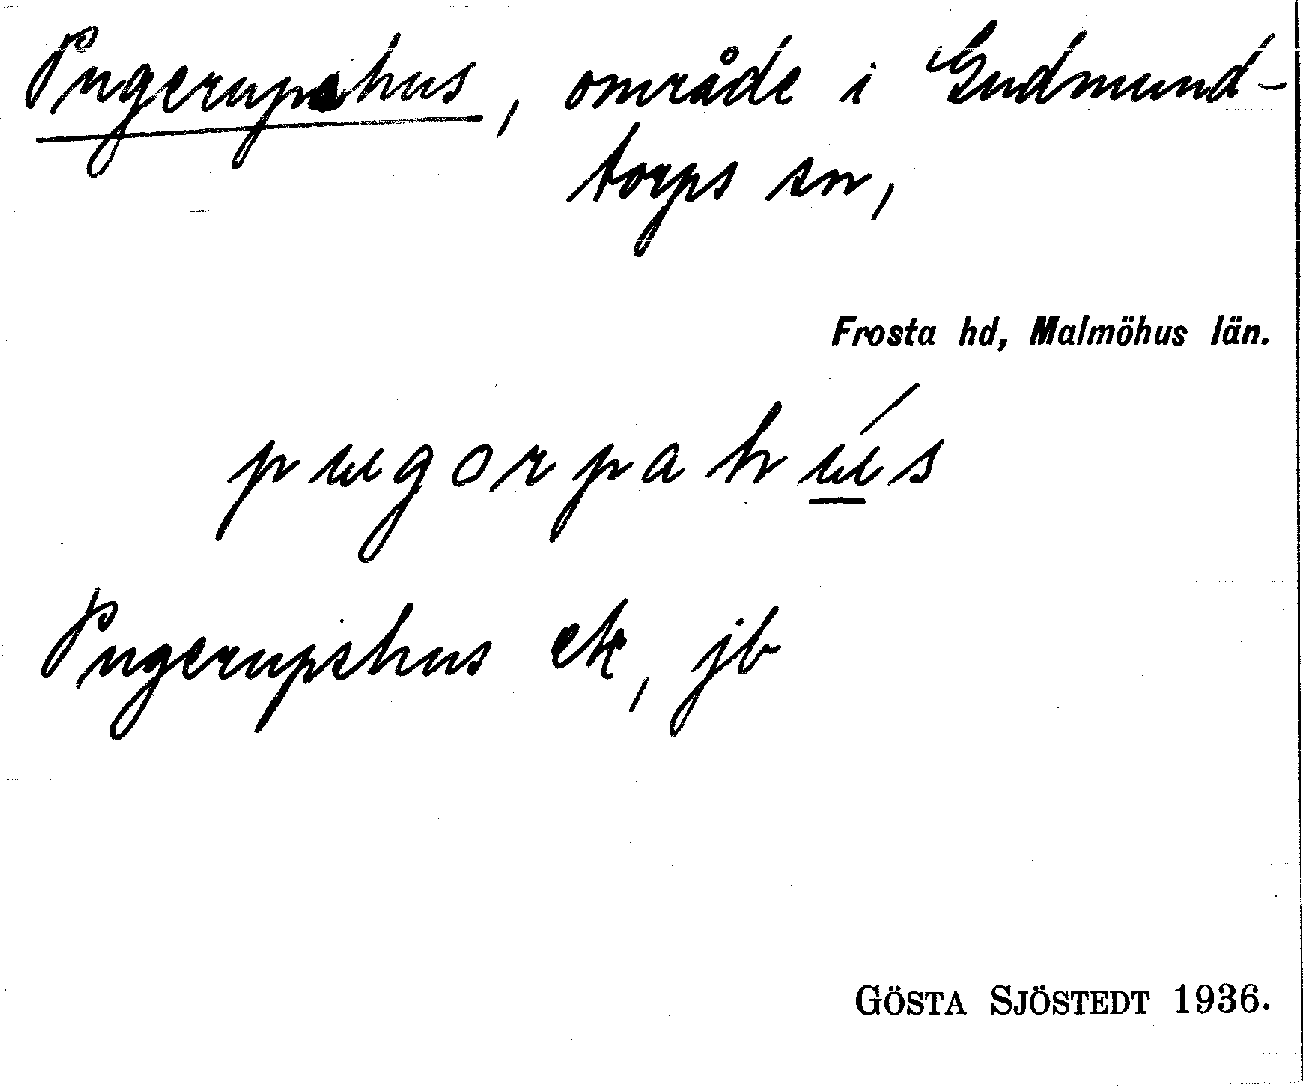 Pugerupshus, område i Gudmund-
torps sn,
Frosta hd, Malmöhus län.
pugorpahús
Pugerupshus ek, jb
GÖSTA SJÖSTEDT 1936.